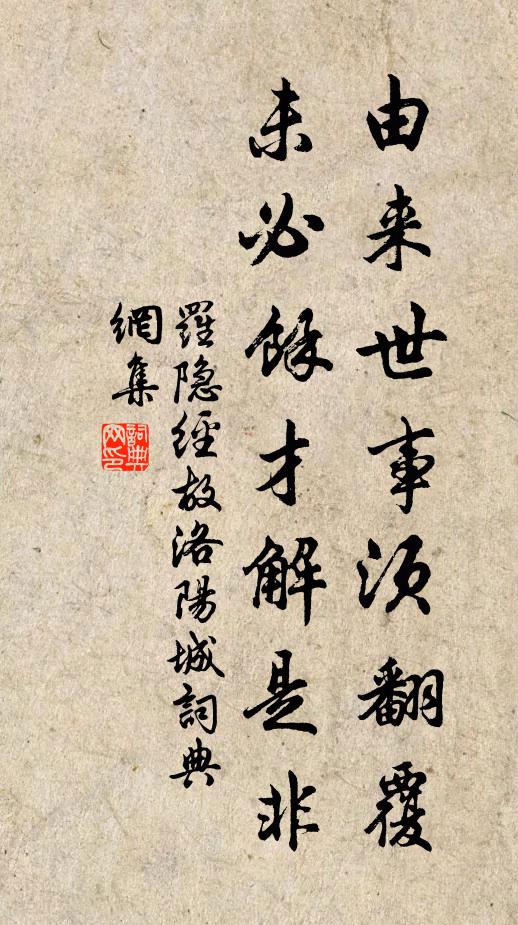 由来世事須翻覆
未必餘才解是非
羅隐經故洛陽城詞典
網集
詞典网印